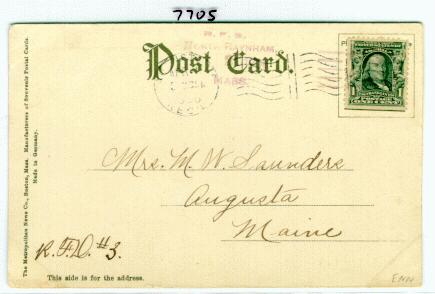 7705
R.F.D.
NORTH RAYNHAM,
MASS.
Post Card.
ONE CENT
Mrs. M. W. Saunders
Augusta
Maine
R.F.D. #3.
This side is for the address.
The Metropolitan News Co., Boston, Mass. Manufacturers of Souvenir Postal Cards.
Made in Germany.
ENN